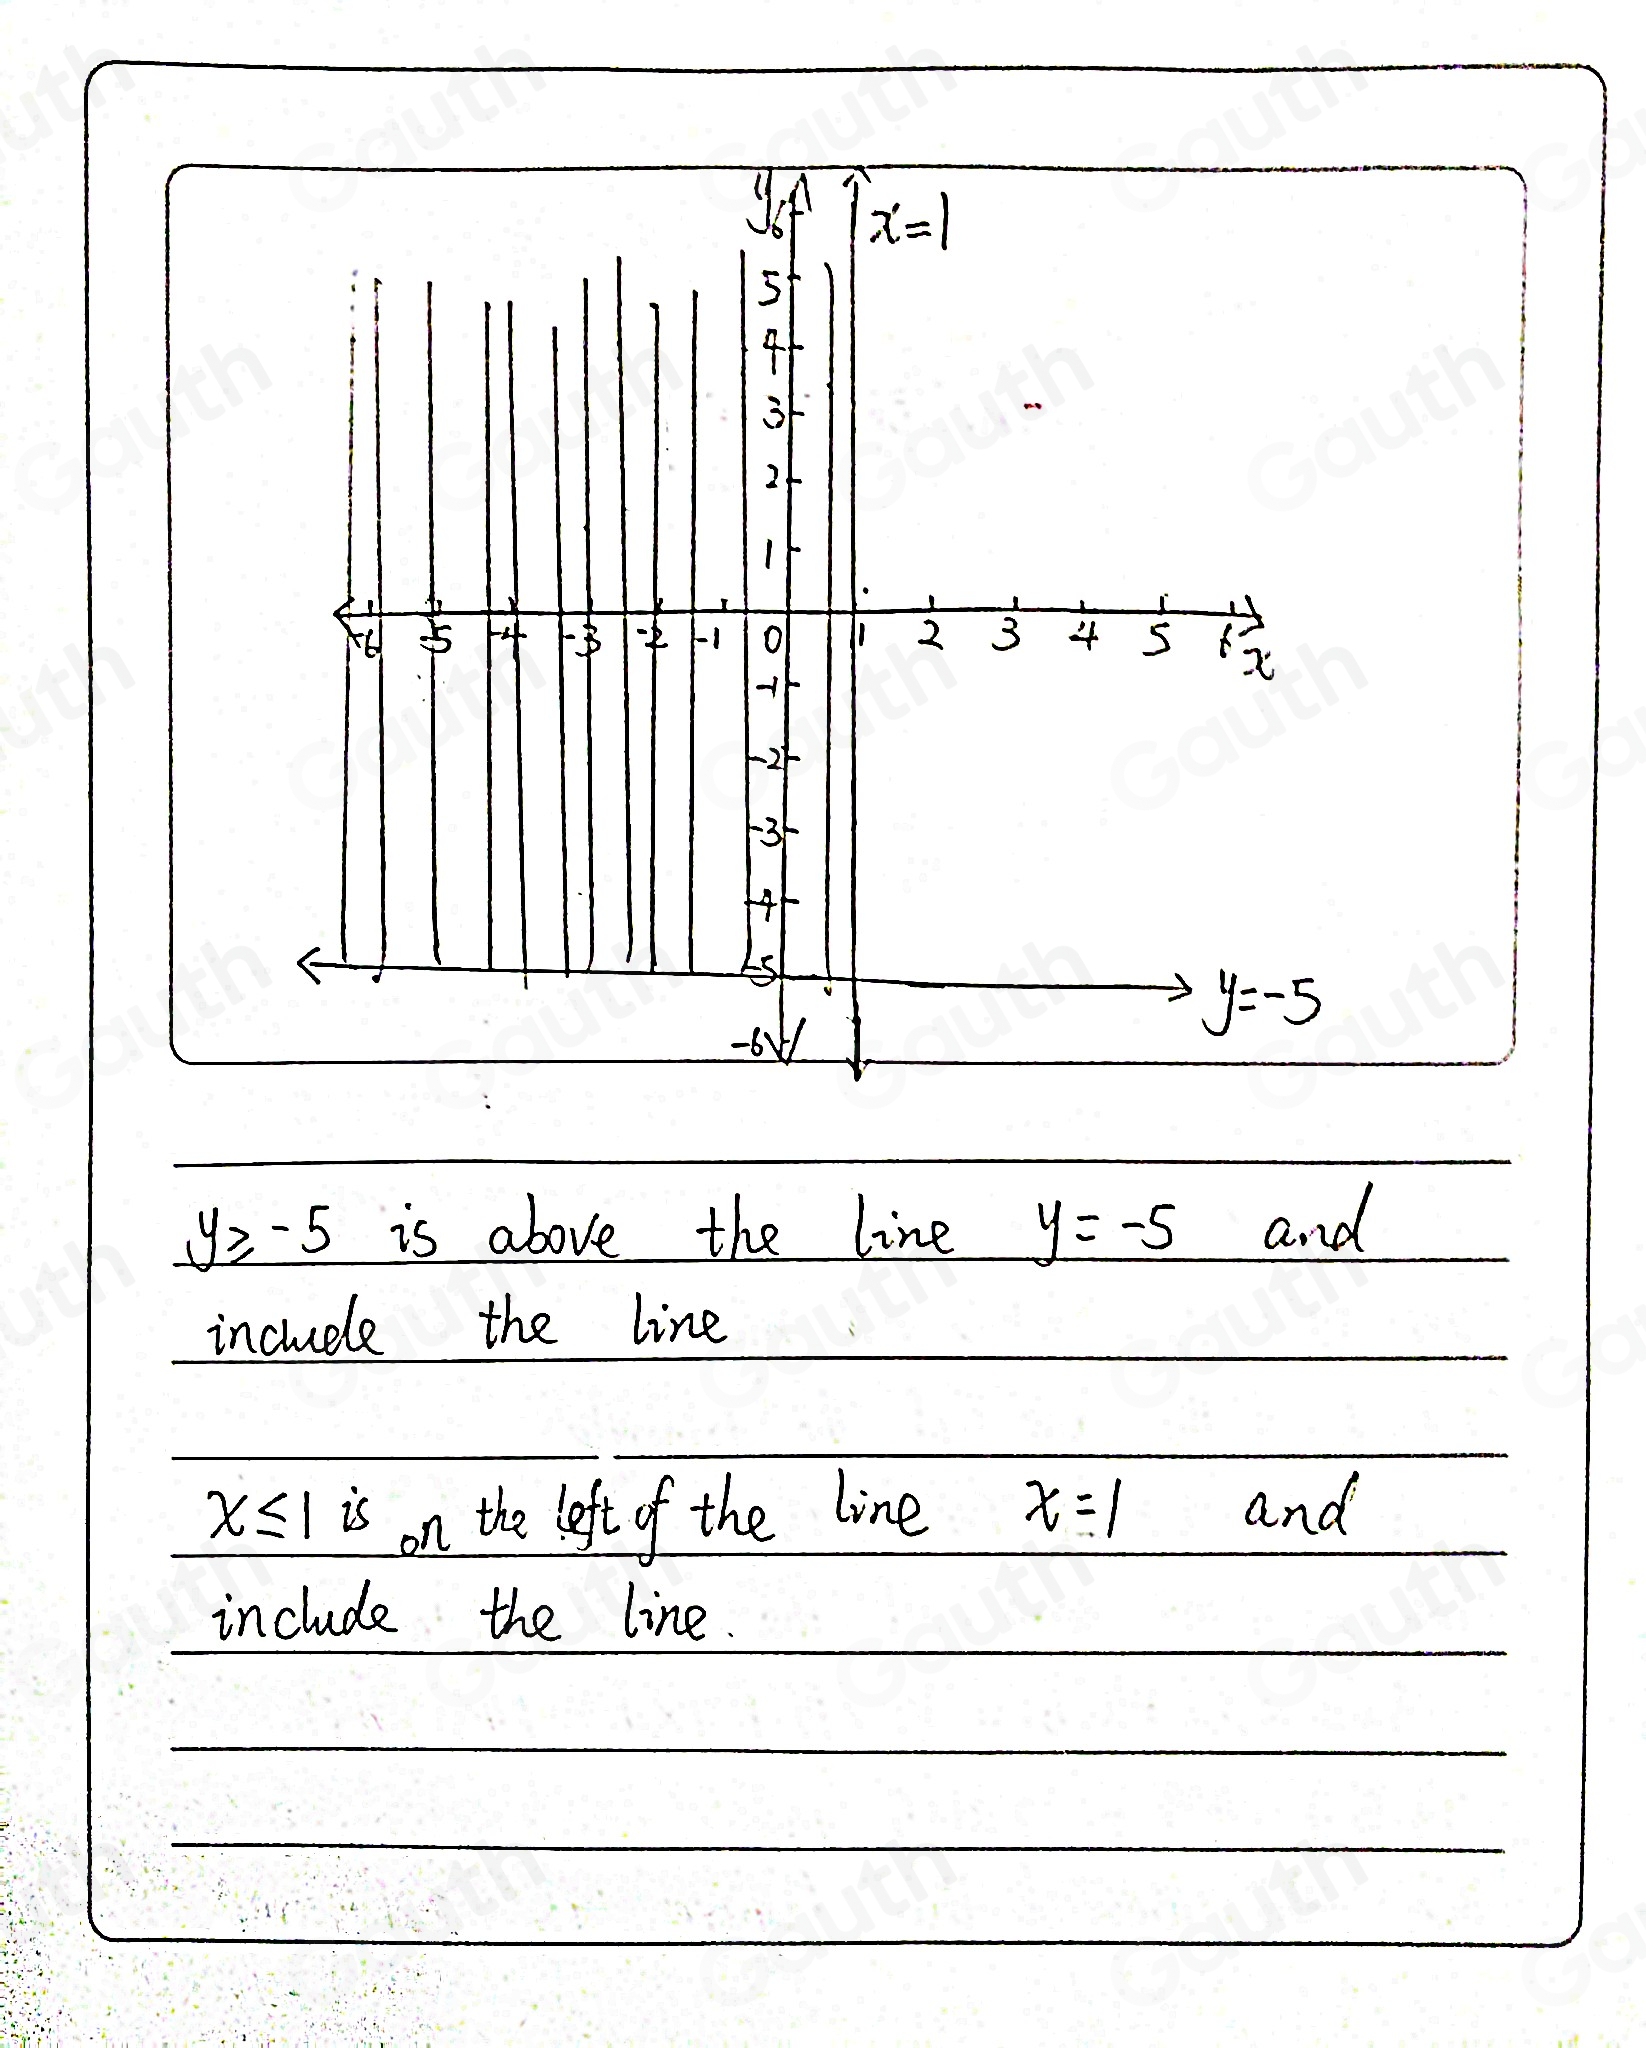 y
6
x=1
5
4
3
2
1
-6 -5 -4 -3 -2 -1 0 1 2 3 4 5 6
x
-1
-2
-3
-4
-5
y=-5
-6
y≥-5 is above the line y=-5 and
include the line
x≤1 is on the left of the line x=1 and
include the line.
Gauth